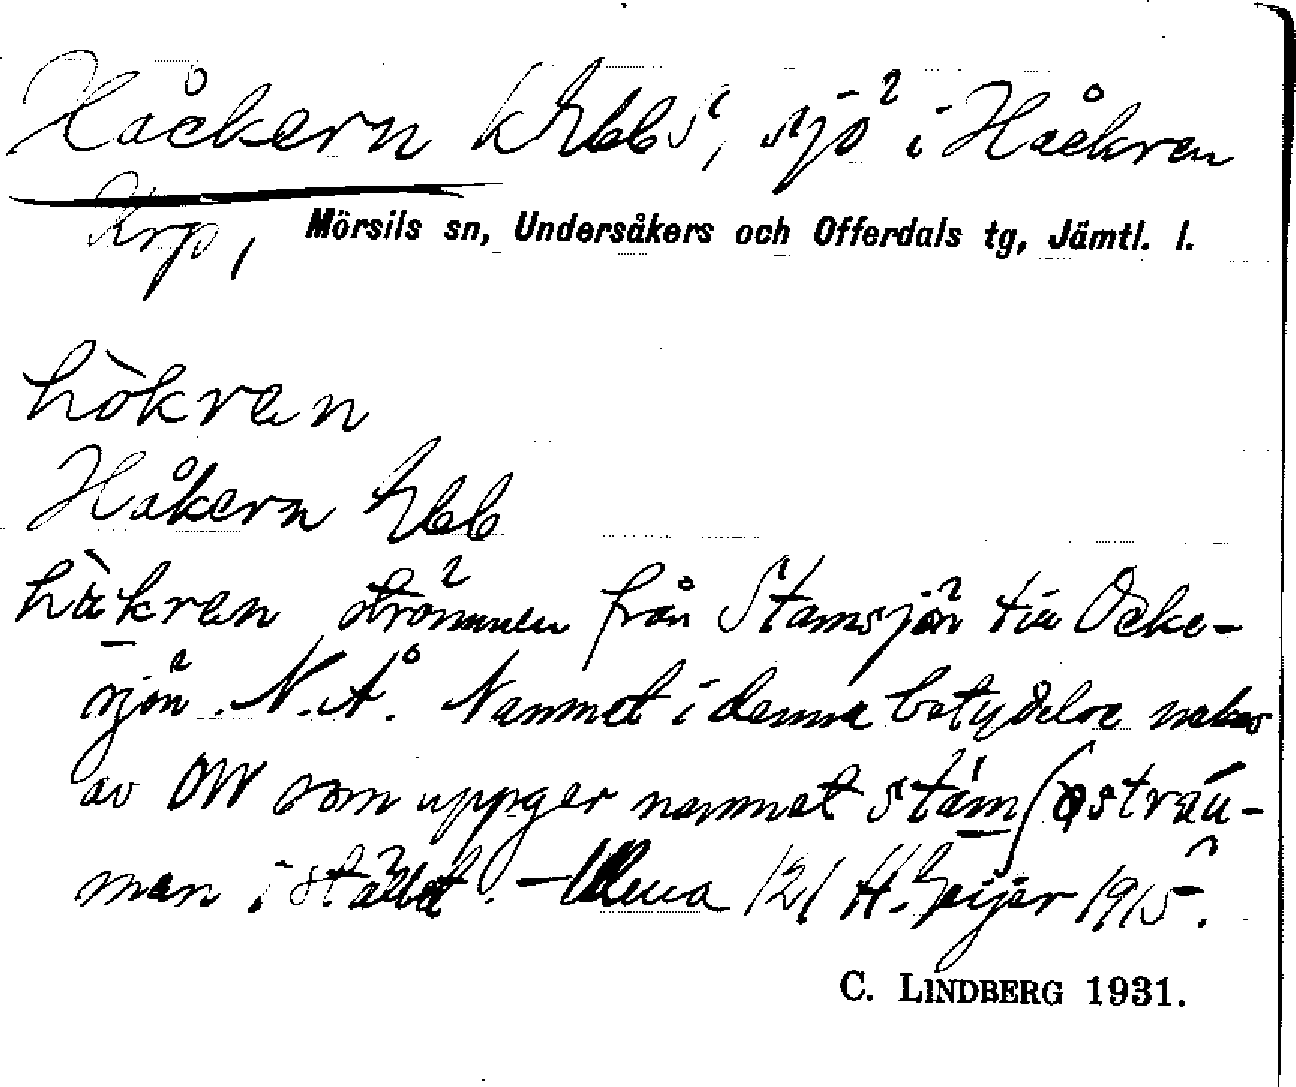 Håckern kXbbS, sjö i Håckren
krp, Mörsils sn, Undersåkers och Offerdals tg, Jämtl. l.
hòkren
Håkern Xbb
hàkren strömmen från Stamsjön till Ocke-
sjön. N.Å. Namnet i denna betydelse nekas
av OW som uppger namnet stám
man i stället. – 121 H. Geijer 1915.
C. LINDBERG 1931.